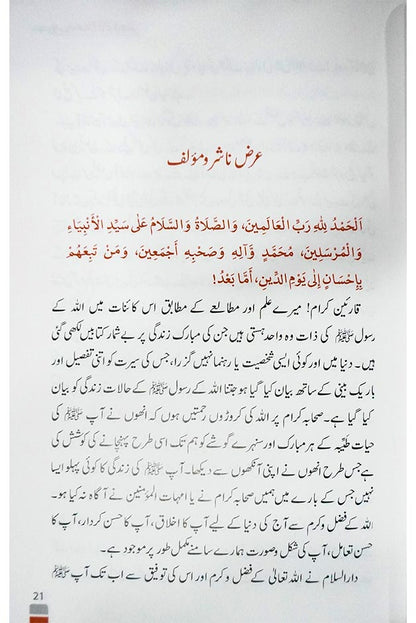 عرض ناشر و مؤلف
اَلْحَمْدُ لِلّٰهِ رَبِّ الْعَالَمِينَ، وَالصَّلَاةُ وَالسَّلَامُ عَلٰى سَيِّدِ الْأَنْبِيَاءِ
وَالْمُرْسَلِينَ، مُحَمَّدٍ وَّآلِهِ وَصَحْبِهِ أَجْمَعِينَ، وَمَنْ تَبِعَهُمْ
بِإِحْسَانٍ إِلٰى يَوْمِ الدِّينِ، أَمَّا بَعْدُ!
قارئین کرام! میرے علم اور مطالعے کے مطابق اس کائنات میں اللہ کے
رسول ﷺ کی ذات وہ واحد ہستی ہیں جن کی مبارک زندگی پر بے شمار کتابیں لکھی گئی
ہیں۔ دنیا میں اور کوئی ایسی شخصیت یا رہنما نہیں گزرا، جس کی سیرت کو اتنی تفصیل اور
باریک بینی کے ساتھ بیان کیا گیا ہو جتنا اللہ کے رسول ﷺ کے حالات زندگی کو بیان
کیا گیا ہے۔ صحابہ کرام پر اللہ کی کروڑوں رحمتیں ہوں کہ انھوں نے آپ ﷺ کی
حیات طیّبہ کے ہر مبارک اور سنہرے گوشے کو ہم تک اسی طرح پہنچانے کی کوشش کی
ہے جس طرح انھوں نے اپنی آنکھوں سے دیکھا۔ آپ ﷺ کی زندگی کا کوئی پہلو ایسا
نہیں جس کے بارے میں ہمیں صحابہ کرام نے یا امہات المؤمنین نے آگاہ نہ کیا ہو۔
اللہ کے فضل و کرم سے آج کی دنیا کے لیے آپ کا اخلاق، آپ کا حسن کردار، آپ کا
حسن تعامل، آپ کی شکل و صورت ہمارے سامنے مکمل طور پر موجود ہے۔
دارالسلام نے اللہ تعالیٰ کے فضل و کرم اور اس کی توفیق سے اب تک آپ ﷺ
21